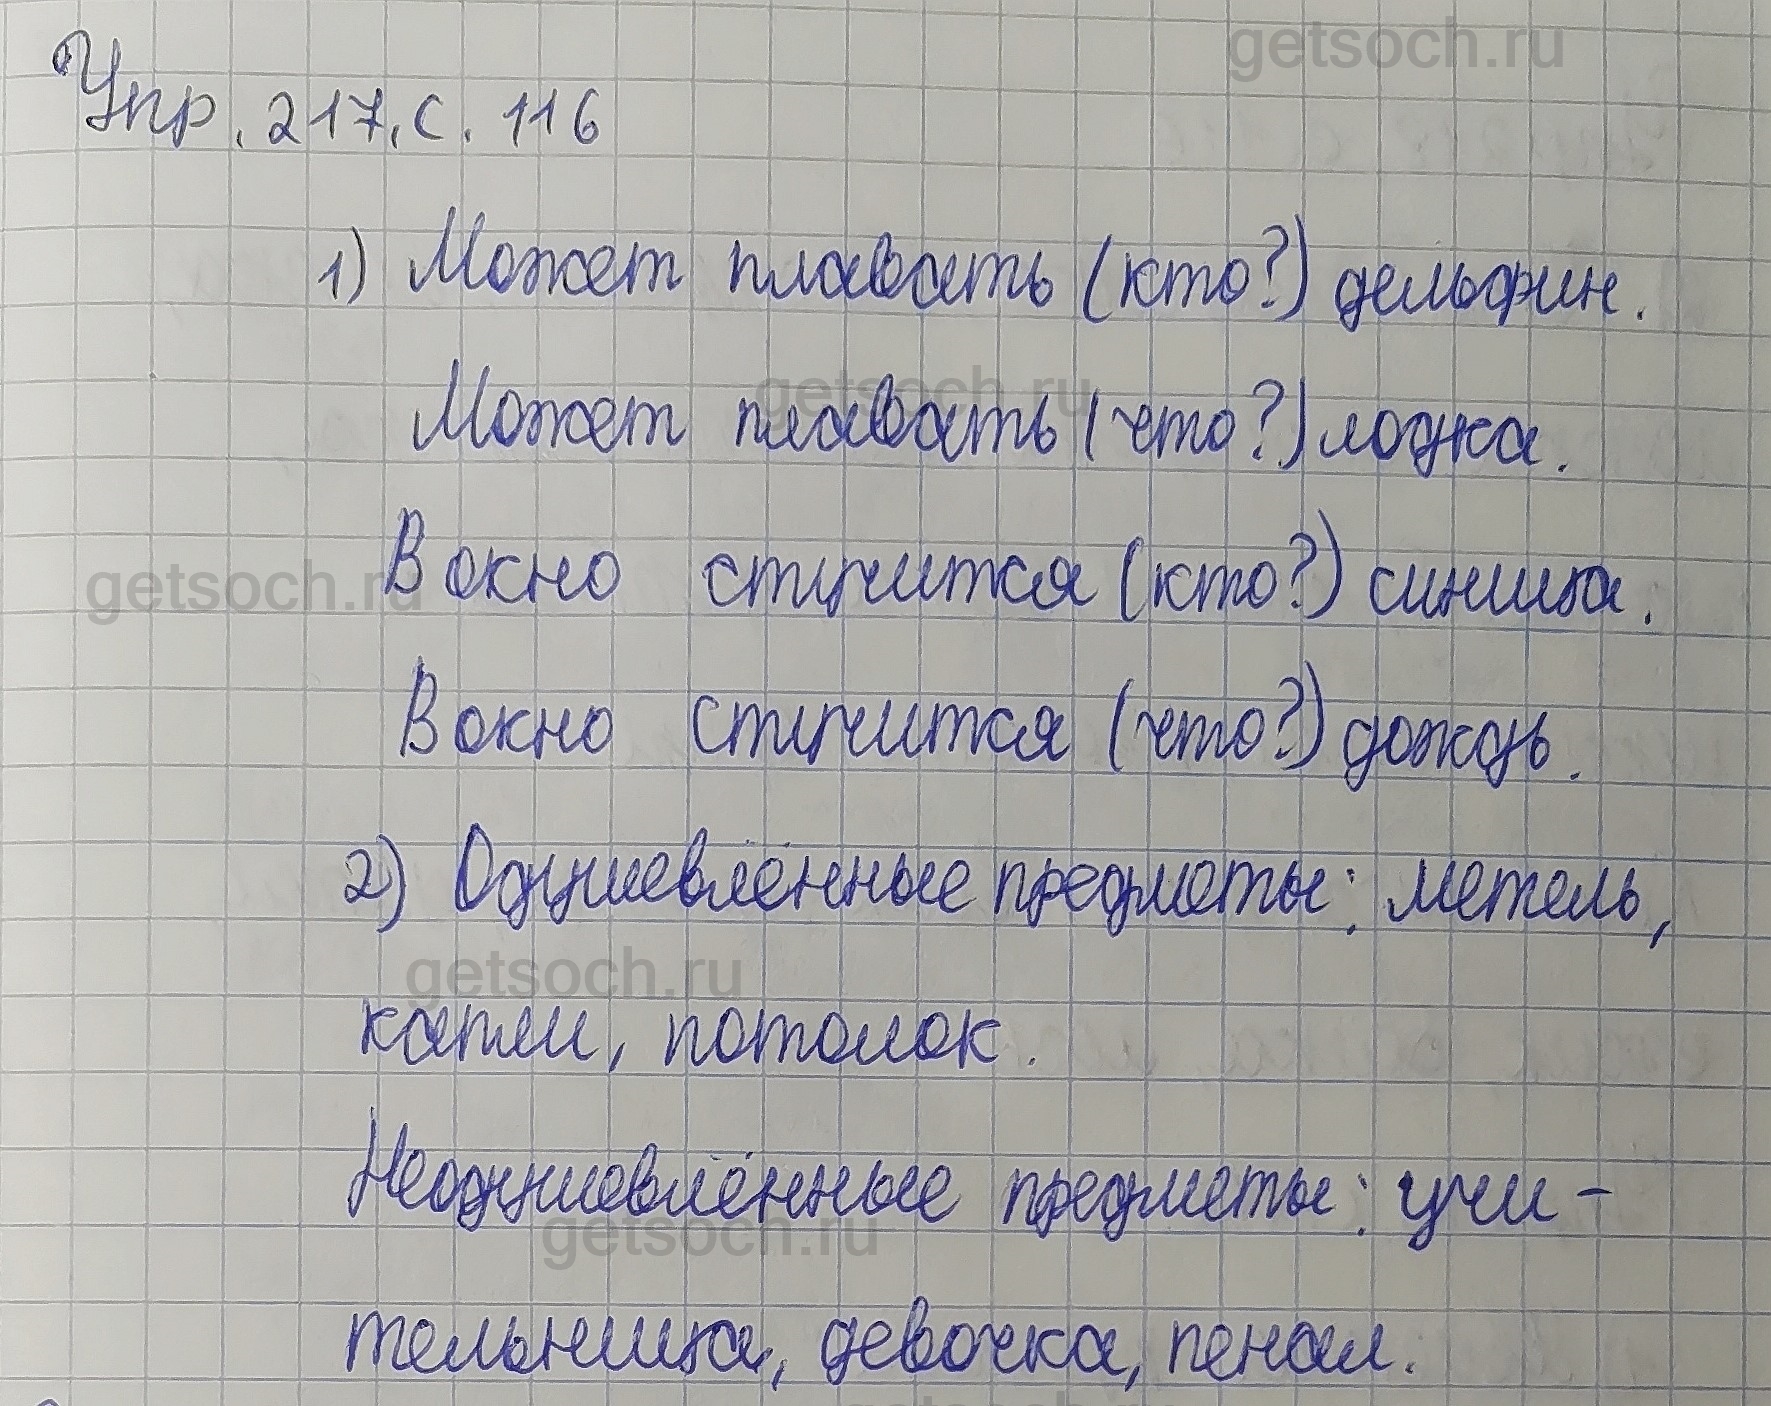 getsoch.ru
Упр. 217, с. 116
1) Может плавать (кто?) дельфин.
getsoch.ru
Может плавать (что?) лодка.
В окно стучится (кто?) синица.
getsoch.ru
В окно стучится (что?) дождь.
2) Одушевлённые предметы: метель,
getsoch.ru
капли, потолок.
Неодушевлённые предметы: учи-
getsoch.ru
тельница, девочка, пенал.
getsoch.ru